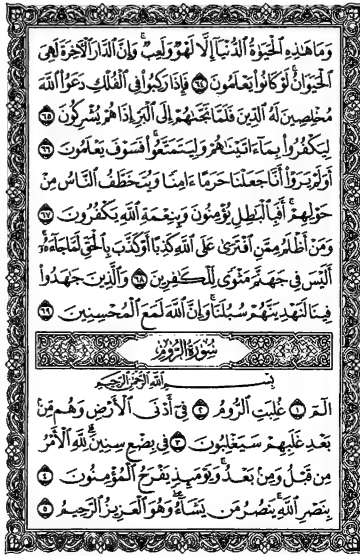 وَمَا هَٰذِهِ الْحَيَوٰةُ الدُّنْيَا إِلَّا لَهْوٌ وَلَعِبٌ ۚ وَإِنَّ الدَّارَ الْآخِرَةَ لَهِيَ
الْحَيَوَانُ ۚ لَوْ كَانُوا يَعْلَمُونَ ٦٤ فَإِذَا رَكِبُوا فِي الْفُلْكِ دَعَوُا اللَّهَ
مُخْلِصِينَ لَهُ الدِّينَ فَلَمَّا نَجَّىٰهُمْ إِلَى الْبَرِّ إِذَا هُمْ يُشْرِكُونَ ٦٥
لِيَكْفُرُوا بِمَا ءَاتَيْنَٰهُمْ وَلِيَتَمَتَّعُوا ۖ فَسَوْفَ يَعْلَمُونَ ٦٦
أَوَلَمْ يَرَوْا أَنَّا جَعَلْنَا حَرَمًا ءَامِنًا وَيُتَخَطَّفُ النَّاسُ مِنْ
حَوْلِهِمْ ۚ أَفَبِالْبَٰطِلِ يُؤْمِنُونَ وَبِنِعْمَةِ اللَّهِ يَكْفُرُونَ ٦٧
وَمَنْ أَظْلَمُ مِمَّنِ افْتَرَىٰ عَلَى اللَّهِ كَذِبًا أَوْ كَذَّبَ بِالْحَقِّ لَمَّا جَاءَهُ ۚ
أَلَيْسَ فِي جَهَنَّمَ مَثْوًى لِّلْكَٰفِرِينَ ٦٨ وَالَّذِينَ جَٰهَدُوا
فِينَا لَنَهْدِيَنَّهُمْ سُبُلَنَا ۚ وَإِنَّ اللَّهَ لَمَعَ الْمُحْسِنِينَ ٦٩
سُورَةُ الرُّومِ
بِسْمِ اللَّهِ الرَّحْمَٰنِ الرَّحِيمِ
الٓمٓ ١ غُلِبَتِ الرُّومُ ٢ فِي أَدْنَى الْأَرْضِ وَهُم مِّنْ
بَعْدِ غَلَبِهِمْ سَيَغْلِبُونَ ٣ فِي بِضْعِ سِنِينَ ۗ لِلَّهِ الْأَمْرُ
مِن قَبْلُ وَمِنْ بَعْدُ ۚ وَيَوْمَئِذٍ يَفْرَحُ الْمُؤْمِنُونَ ٤
بِنَصْرِ اللَّهِ ۚ يَنصُرُ مَن يَشَاءُ ۖ وَهُوَ الْعَزِيزُ الرَّحِيمُ ٥